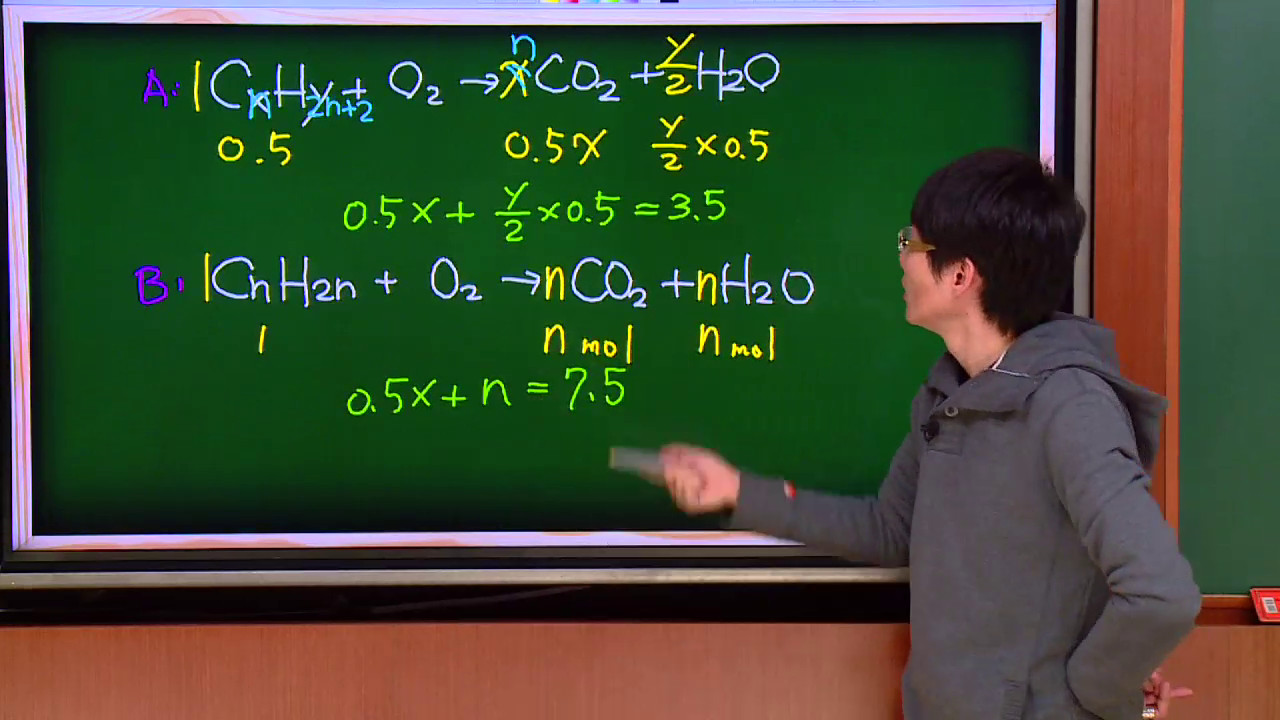 A: 1CxHy + O2 → xCO2 + y/2 H2O
n 2n+2 n
0.5 0.5x y/2 × 0.5
0.5x + y/2 × 0.5 = 3.5
B: 1CnH2n + O2 → nCO2 + nH2O
1 n mol n mol
0.5x + n = 7.5